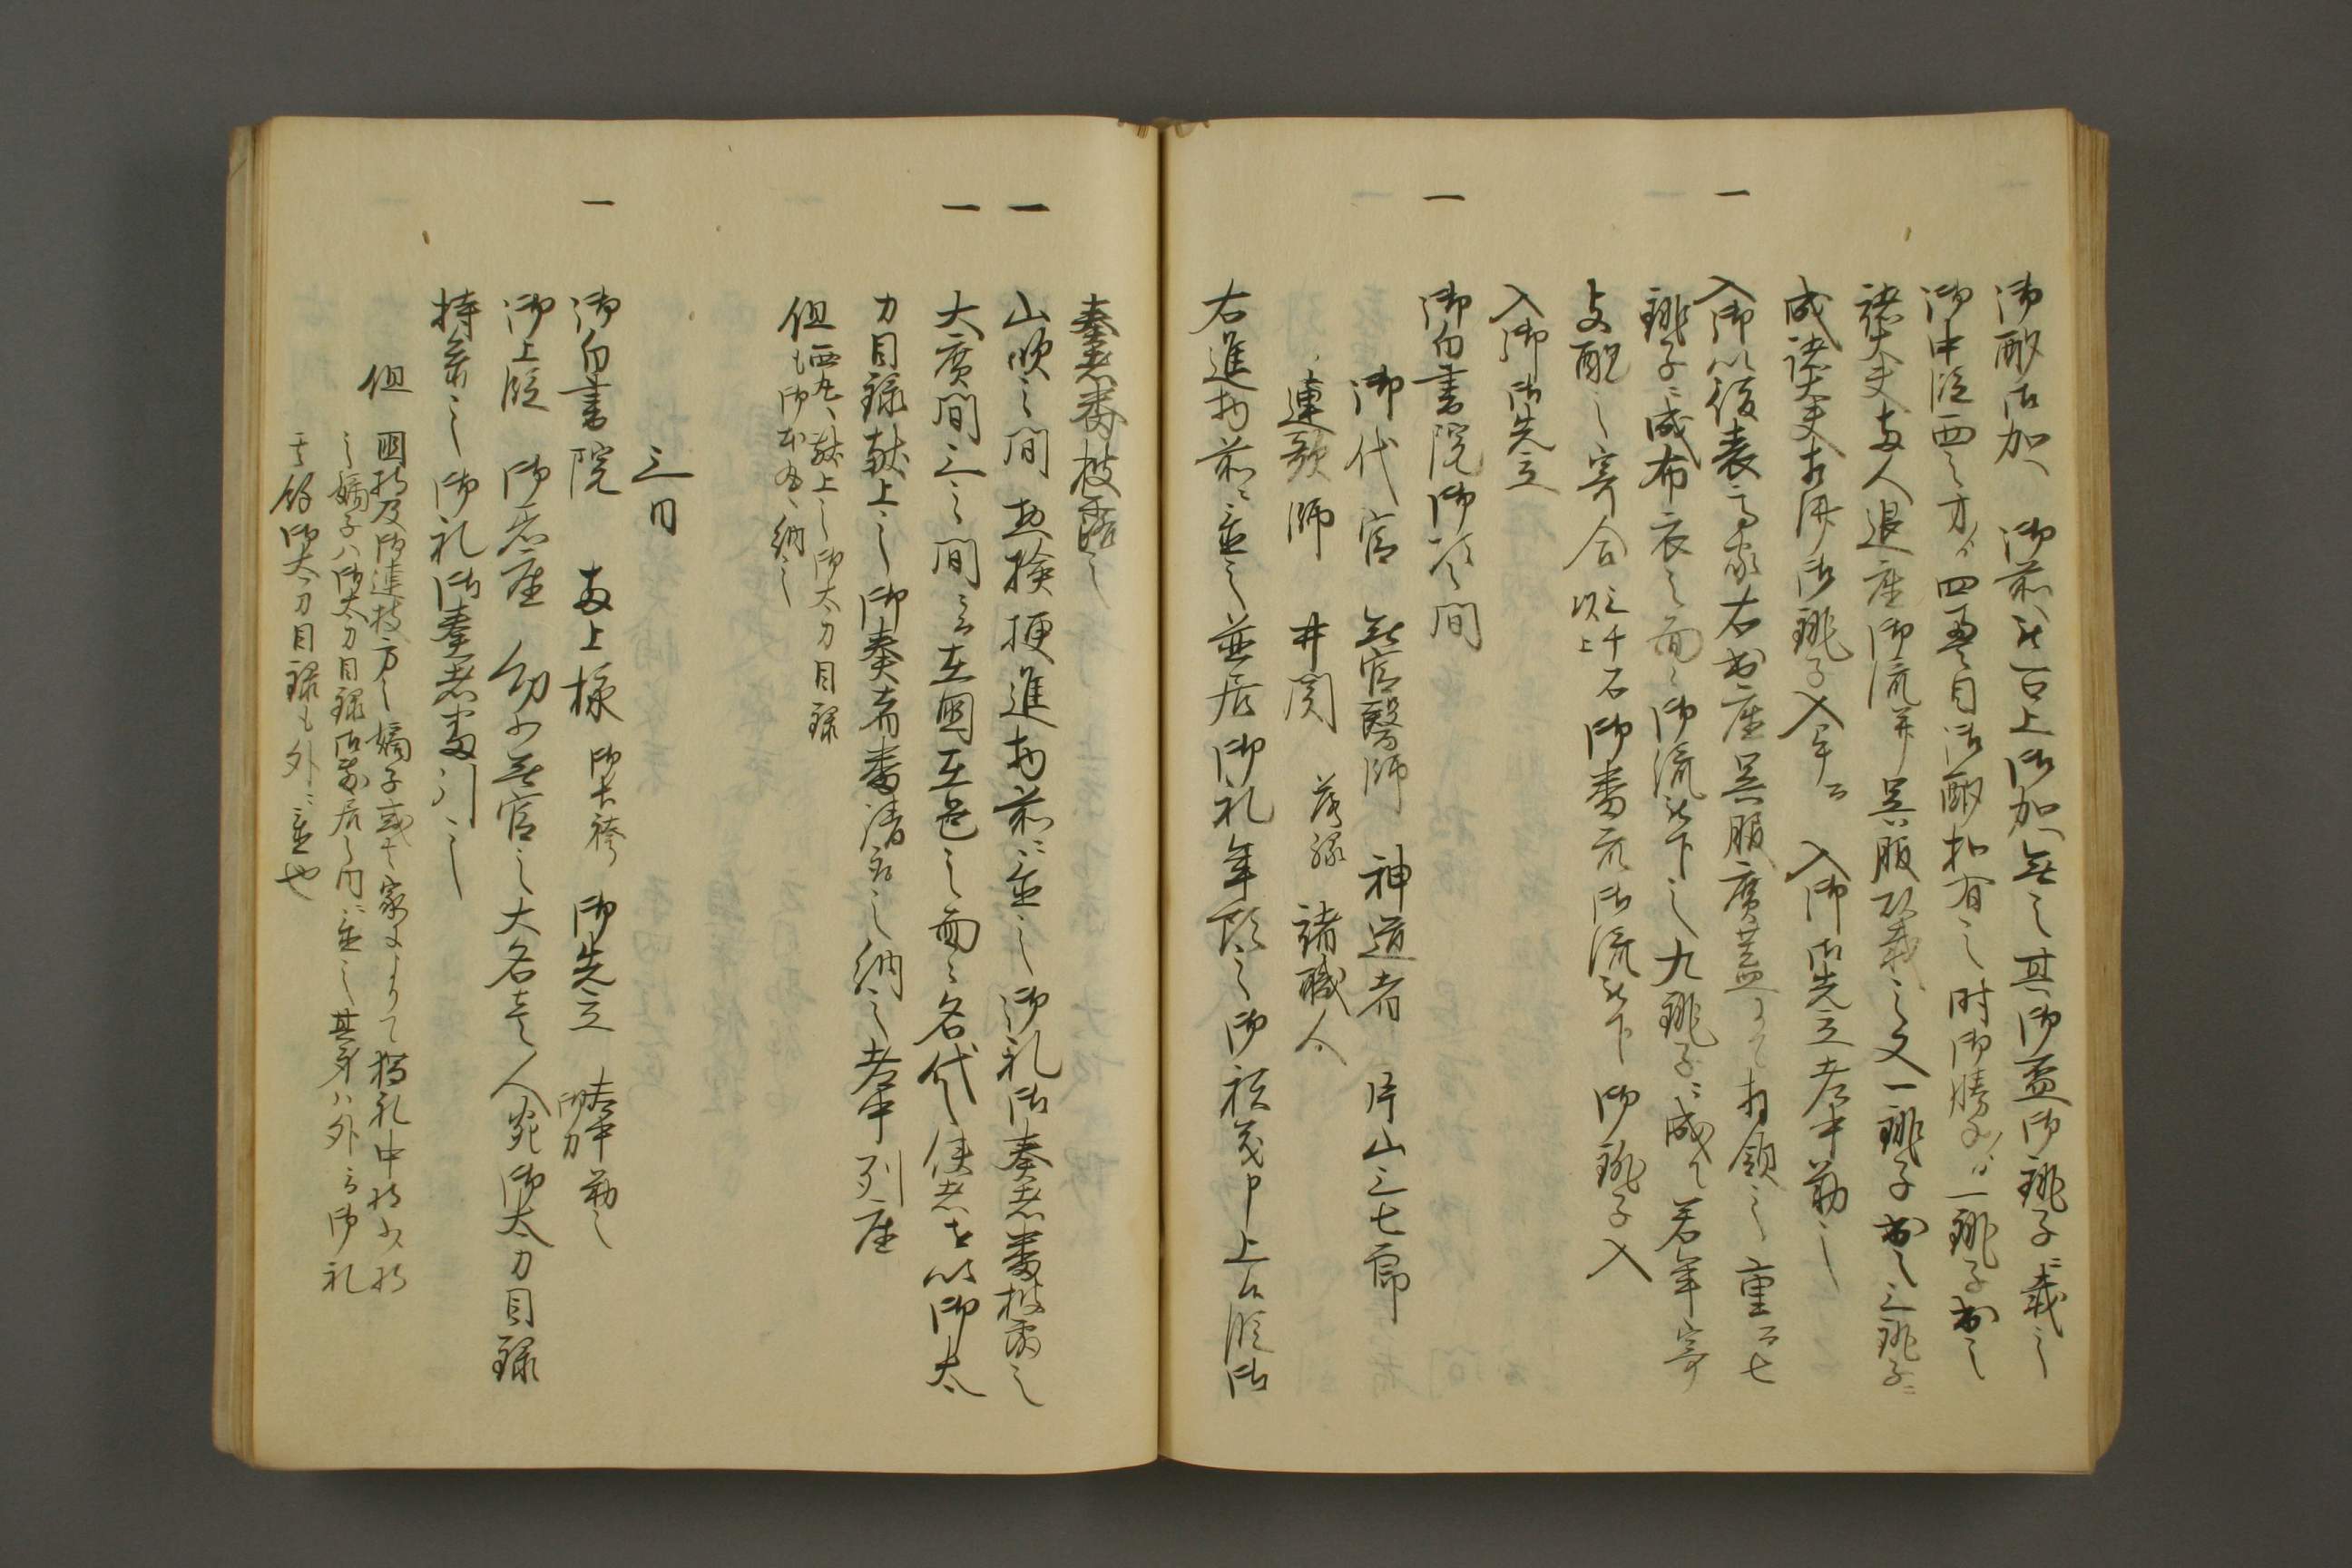 御酌御加へ　御前江召上御加へ無之其御盃御銚子ニ載之
御中段西之方ゟ四畳目御酌扣有之時御勝手ゟ一銚子出之
諸大夫両人退座御流并呉服頂戴之又一銚子出之三銚子ニ
成諸大夫相済御銚子入
入御御先立老中勤之
一　入御以後表高家右出座呉服廣蓋ニて拝領之重而七
銚子ニ成布衣之面々御流被下之九銚子ニ成ル若年寄
支配之寄合三千石以上御番衆御流被下　御銚子入
入御御先立
一　御白書院御次之間
御代官　無官醫師　神道者　片山三七郎
連歌師　井関　諸職人
右進物前ニ並之並居御礼年頭之御祝義申上ル段御
奏者番披露之
一　山吹之間　進物前ニ並之御礼御奏者番披露之
一　大廣間三之間ニ而在國在邑之面々名代之使者を以御太
刀目録献上之御奏者番請取之納之老中列座
但西丸へ献上之御太刀目録
も御本丸へ納之
三日
一　御白書院　両上様　御長袴　御先立　老中勤之
御刀
御上段　御着座　幼少無官之大名壱人宛御太刀目録
持参之御礼御奏者番引之
但　國持及御連枝方之嫡子或ハ家によりて獨礼中
之嫡子ハ御太刀目録御敷居之内ニ並之其身ハ外ニ而御礼
其餘御太刀目録も外ニ並也